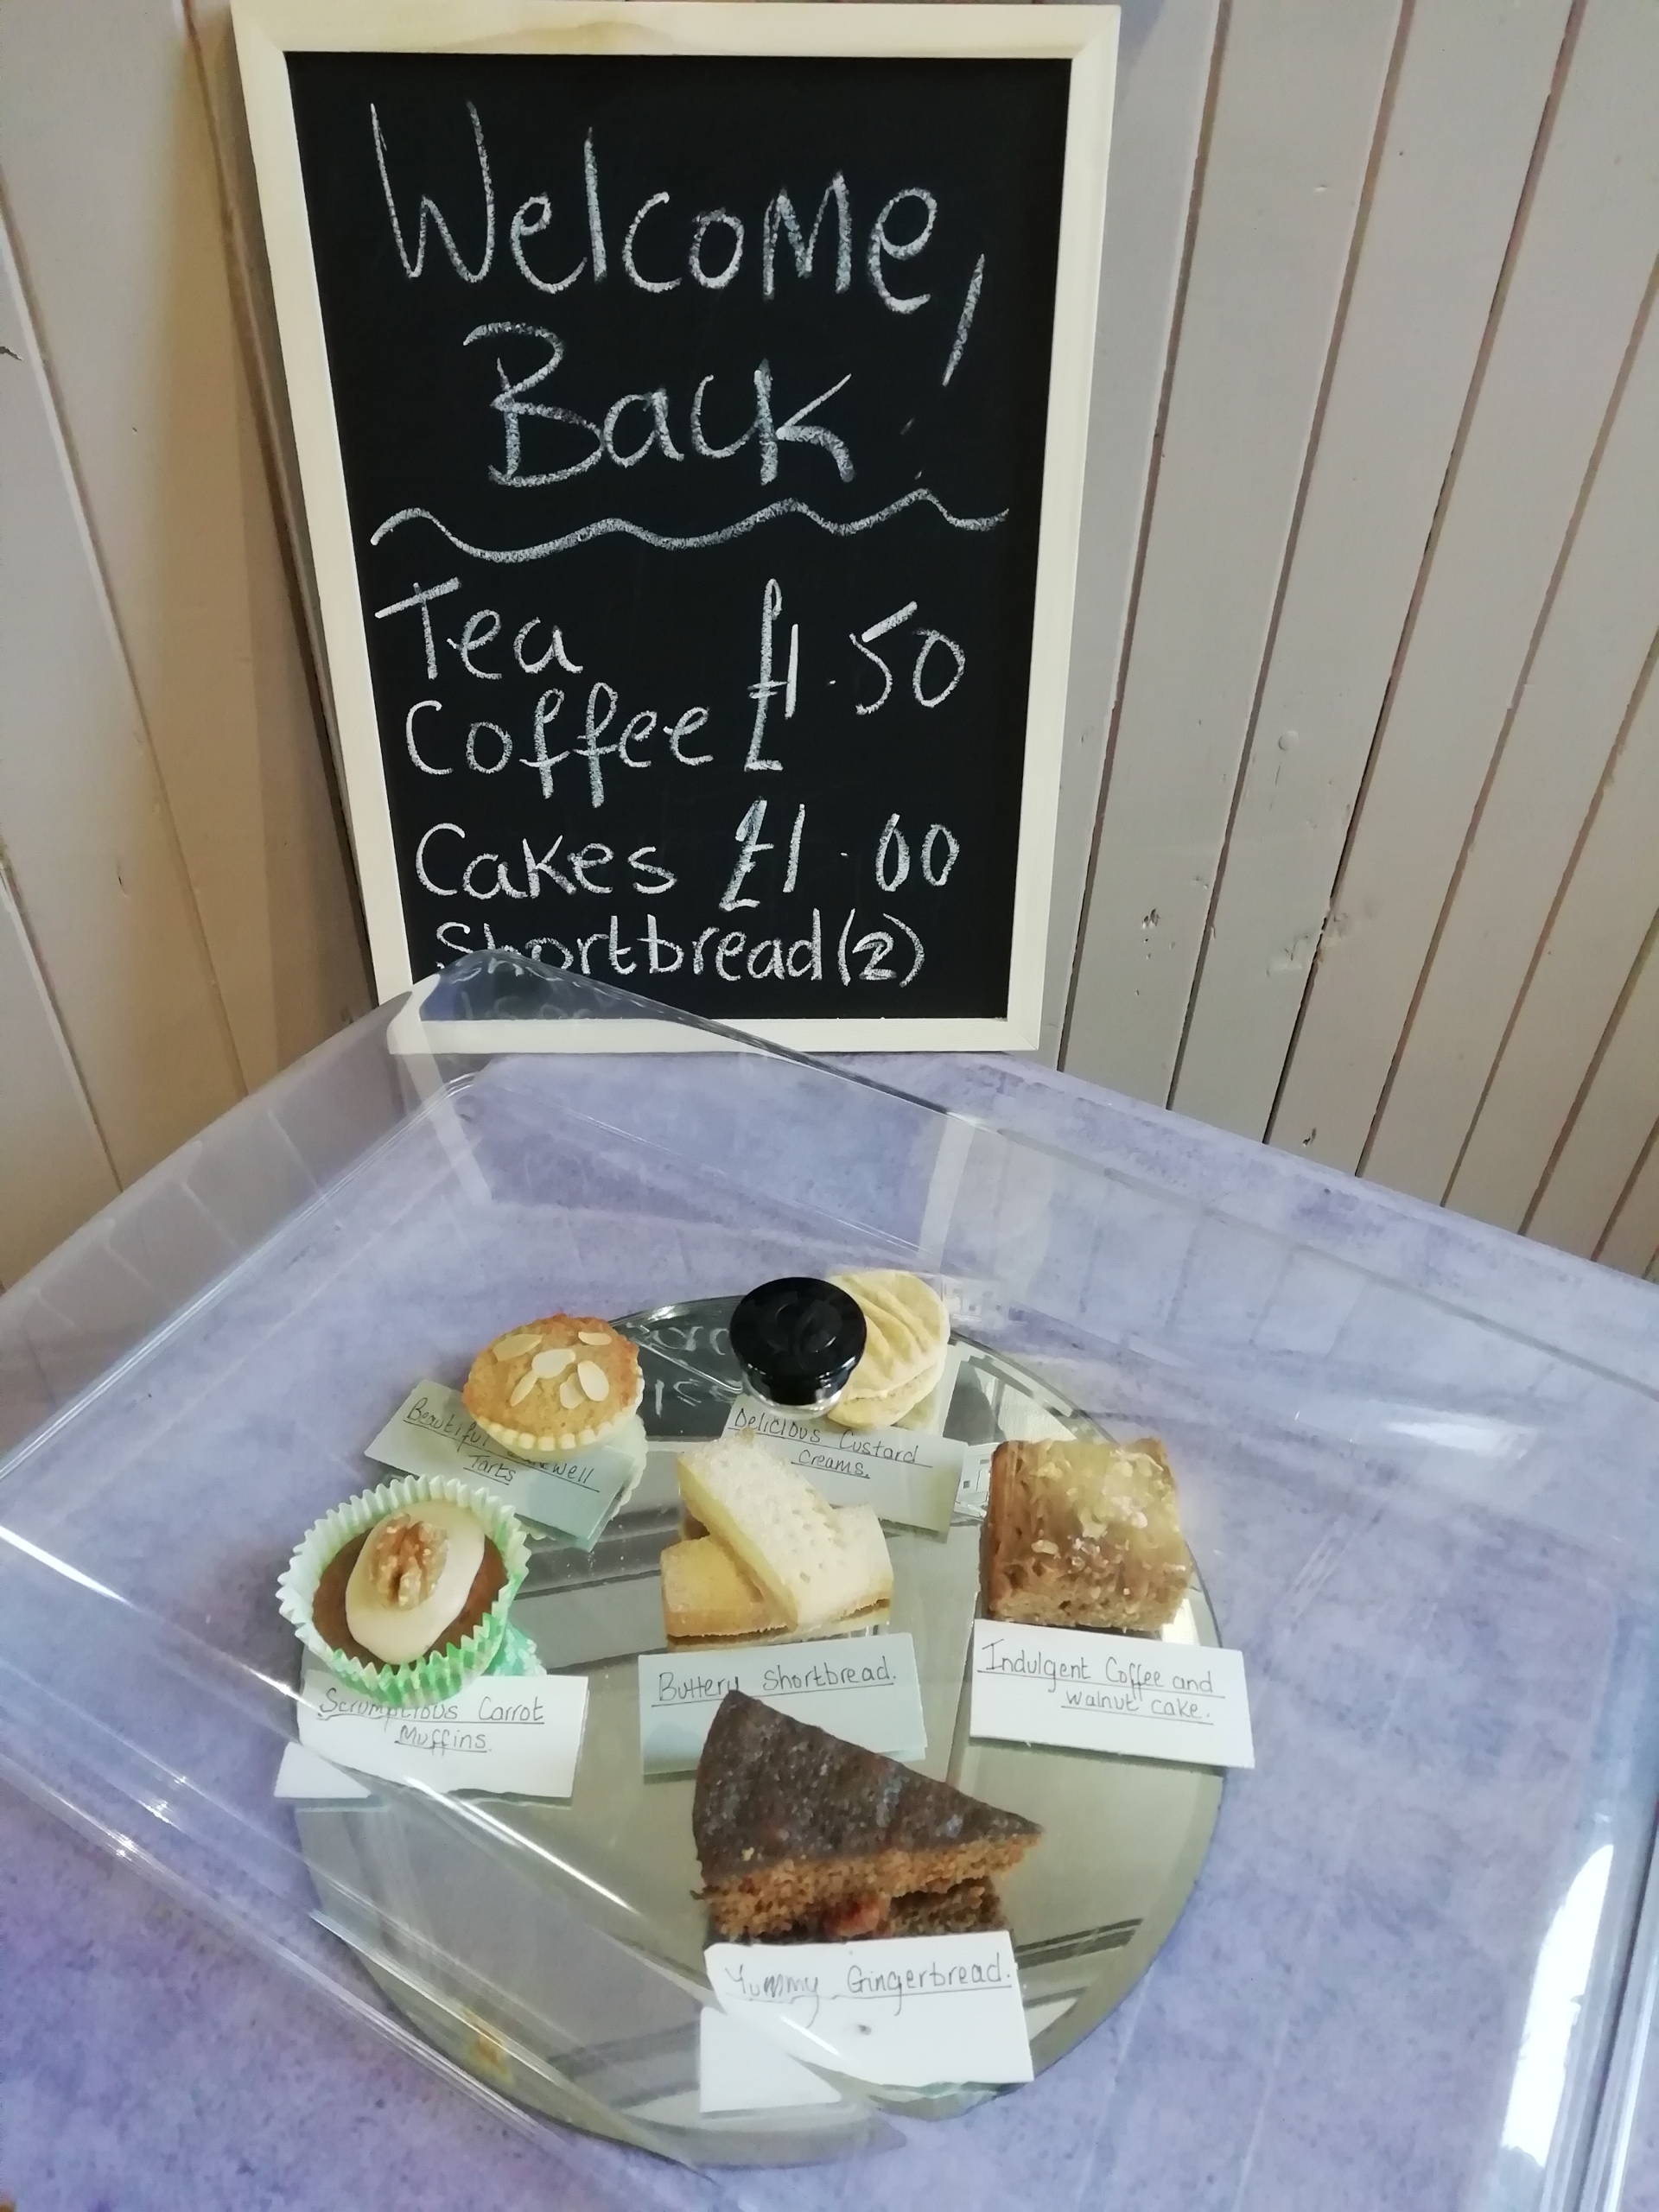 Welcome,
Back!
Tea
£1.50
Coffee
Cakes £1.00
Shortbread (2)
Beautiful
Tarts
Delicious Custard
Creams.
Scrumptious Carrot
Muffins.
Buttery Shortbread.
Indulgent Coffee and
walnut cake.
Yummy Gingerbread.